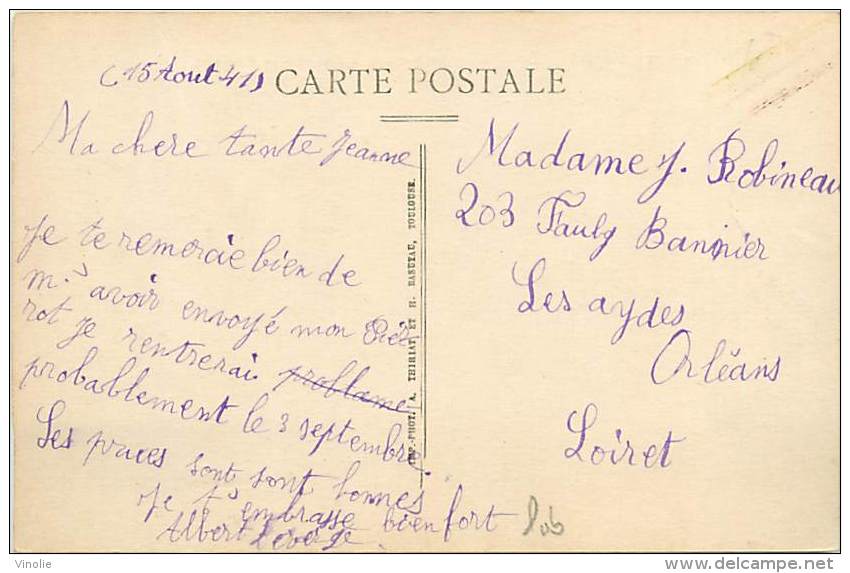 (15 Aout 41)
CARTE POSTALE
Ma chere tante Jeanne
Je te remercie bien de
m'avoir envoyé mon
rot Je rentrerai problame
probablement le 3 septembre.
Les sont sont bonnes
Je t'embrasse bien fort
Albert
Madame J. Robineau
203 Faubg Bannier
Les aydes
Orléans
Loiret
IMP.-PHOT. A. THIRIAT ET H. BASUYAU, TOULOUSE.
Vinolie
www.delcampe.net